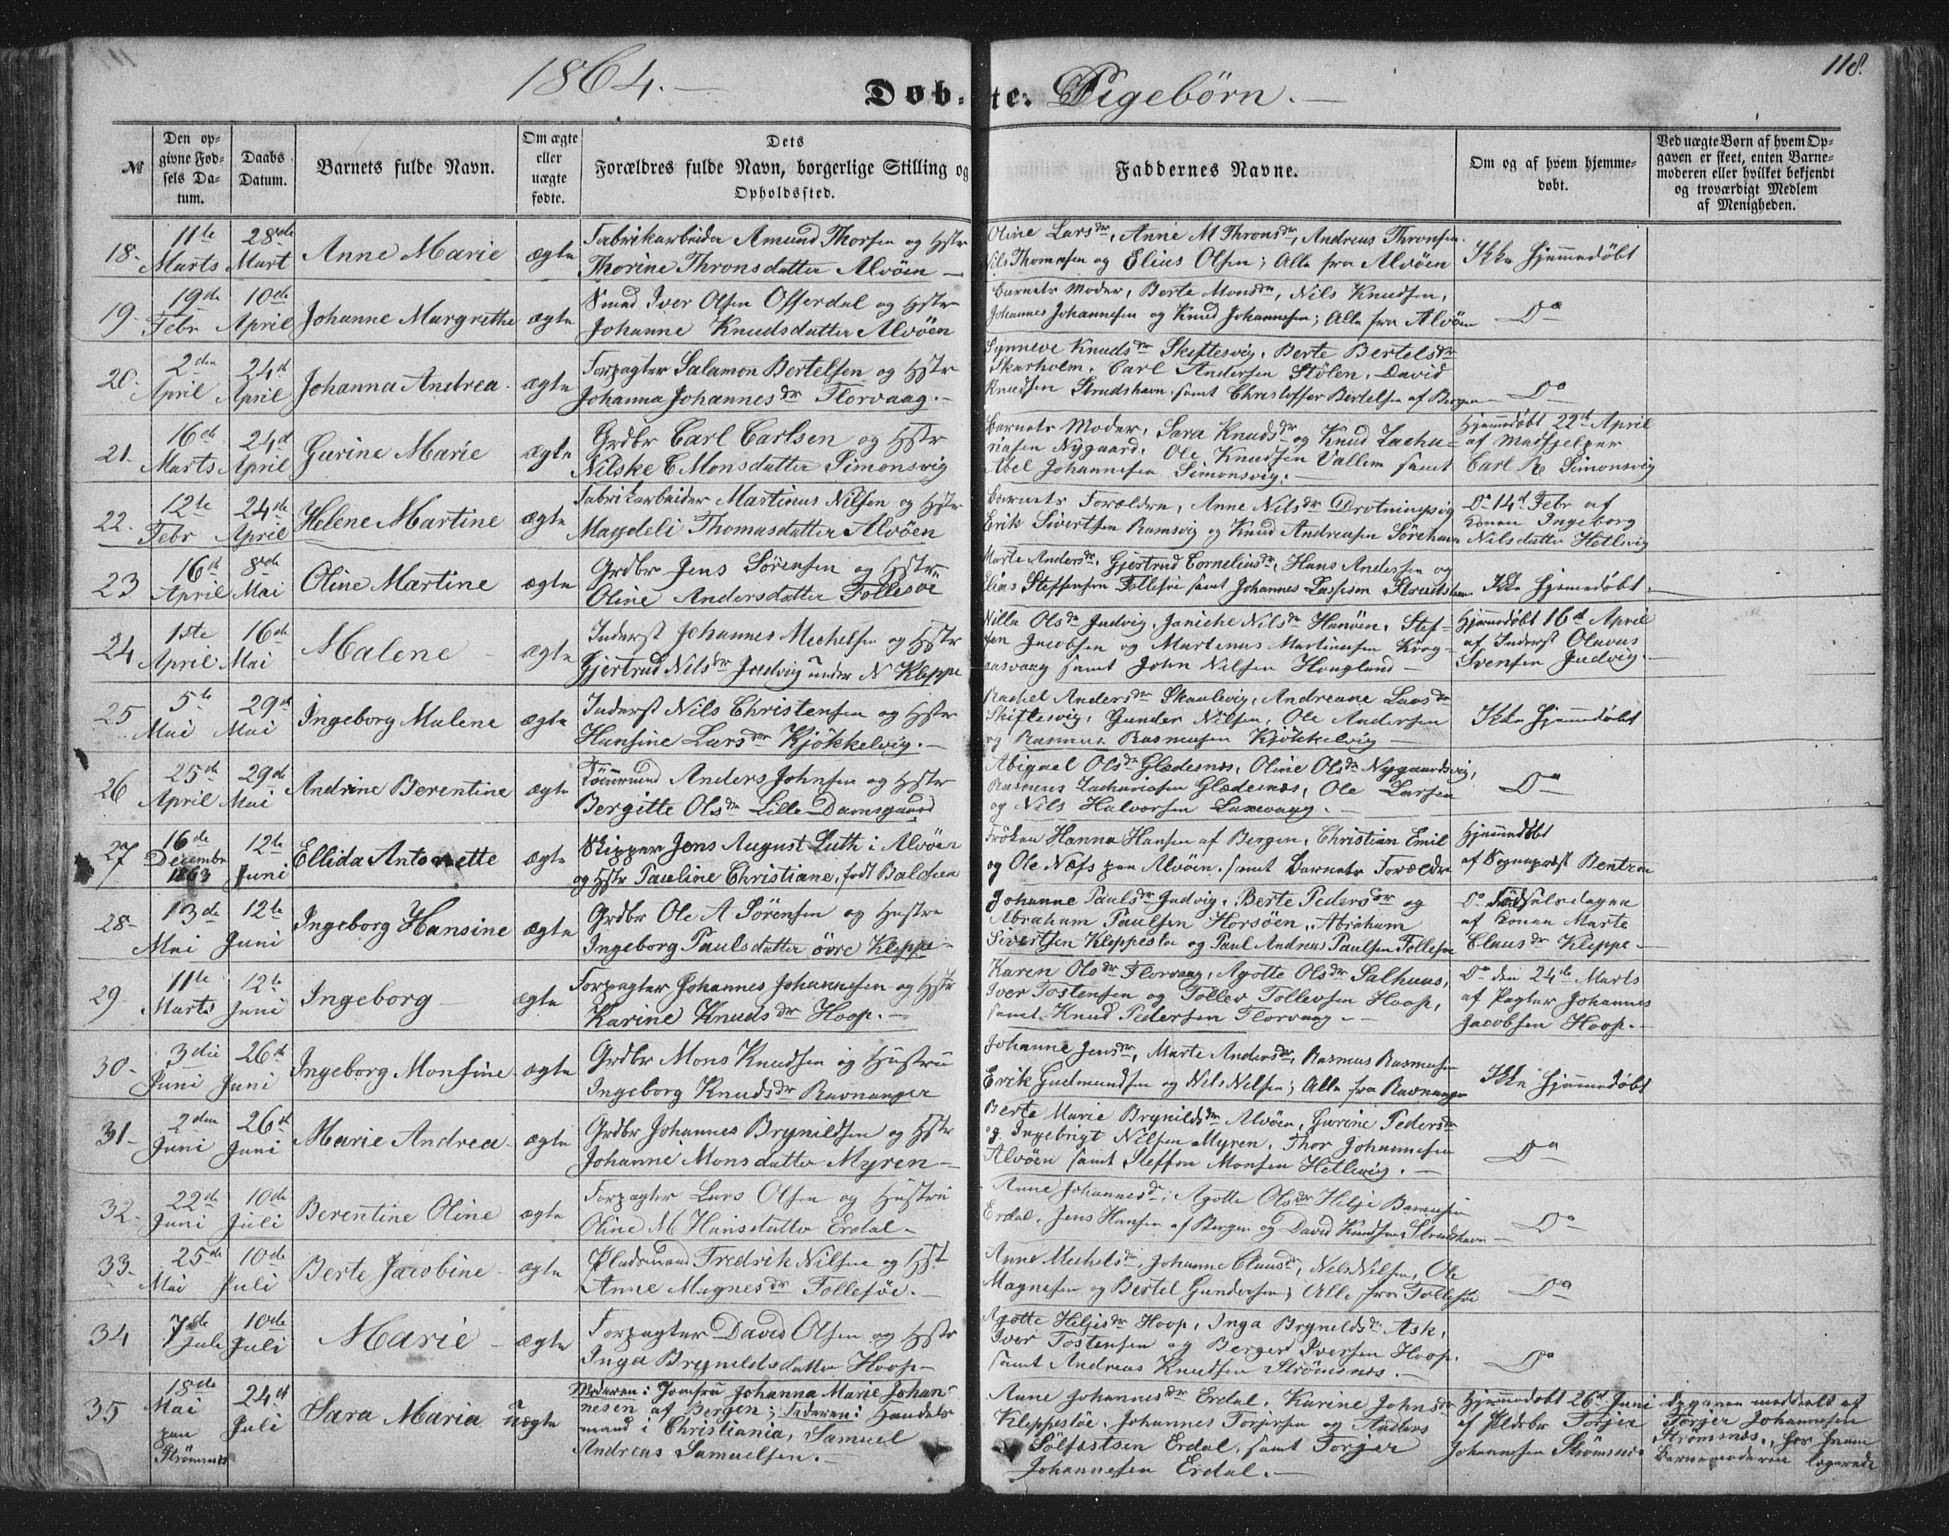 1864.—
Døb-te. Pigebørn.—
118.
№
Den opgivne Fødsels Datum.
Daabs Datum.
Barnets fulde Navn.
Om ægte eller uægte fødte.
Dets Forældres fulde Navn, borgerlige Stilling og Opholdssted.
Faddernes Navne.
Om og af hvem hjemmedøbt.
Ved uægte Børn af hvem Opgaven er skeet, enten Barnemoderen eller hvilket bekjendt og troværdigt Medlem af Menigheden.
18. 11te Marts 28de Mart Anne Marie ægte
Fabrikarbeider Amund Thorsen og Hstr
Thorine Thronsdatter Alvøen —
Oline Larsdr, Anne M Thronsdr, Andreas Thronsen
Nils Thomesen og Elius Olsen; Alle fra Alvöen
Ikke Hjemmedøbt
19. 19de Febr 10de April Johanne Margrethe ægte
Smed Iver Olsen Offerdal og Hstr
Johanne Knudsdatter Alvöen
Barnets Moder, Berte Monsdr, Nils Knudsen,
Johannes Johannesen og Knud Johannesen; Alle fra Alvöen
Do
20. 2den April 24d April Johanna Andrea ægte
Forpagter Salamon Bertelsen og Hstr
Johanna Johannesdr Florvaag.—
Synneve Knudsdr Skiftesvig, Berte Bertelsdr
Skarholm, Carl Andersen Stölen, David
Knudsen Strudshavn, samt Christoffer Bertelsen af Bergen
Do
21. 16de Marts 24d April Gurine Marie ægte
Grdbr Carl Carlsen og Hstr
Nilske C Monsdatter Simonsvig
Barnets Moder, Sara Knudsdr og Knud Zacha-
riasen Nygaard, Ole Knudsen Vallem samt
Abel Johannesen Simonsvig.
Hjemmedøbt 22d April
af Medhjelper
Carl R Simonsvig
22. 12te Febr 24de April Helene Martine ægte
Fabrikarbeider Martinus Nilsen og Hstr
Magdeli Thomasdatter Alvöen
Barnets Forældre, Anne Nilsdr Drotningsvig
Erik Sivertsen Ramsvig og Knud Andreasen Sörehavn
Do 14d Febr af
Konen Ingeborg
Nilsdatter Hetlevig
23 16d April 8de Mai Oline Martine ægte
Grdbr Jens Sörensen og Hstr
Oline Andersdatter Follesöe
Marte Andersdr, Gjertrud Corneliusdr, Hans Andersen og
Elias Steffensen Follesöe samt Johannes Jespersen Strudshavn
Ikke Hjemmedøbt.
24 1ste April 16de Mai Malene ægte
Inderst Johannes Mechelsen og Hstr
Gjertrud Nilsdr Judvig under N Kleppe
Nille Olsdr Judvig, Janiche Nilsdr Hanöen, Stef-
fen Jacobsen og Martinus Martinesen Krog-
aasvaag samt John Nilsen Hougland —
Hjemmedøbt 16d April
af Inderst Olavus
Svensen Judvig.—
25 5te Mai 29d Mai Ingeborg Malene ægte
Inderst Nils Christensen og Hstr
Hansine Larsdr Kjökkelvig.—
Rachel Andersdr Skaalevig, Andreane Larsdr
Skiftesvig, Gunder Nilsen, Ole Andersen
og Rasmus Rasmusen Kjökkelvig —
Ikke Hjemmedøbt
26 25de April 29de Mai Andrine Berentine ægte
Tömmermand Anders Johnsen og Hstr
Bergitte Olsdr Lille Damsgaard
Abigael Olsdr Gladesnes, Oline Olsdr Nygaardsvig,
Rasmus Zachariasen Gladesnes, Ole Larsen
og Nils Halvorsen Laxevaag.—
Do
27 16de Decembr 1863 12te Juni Ellida Antonette ægte
Skipper Jens August Luth i Alvöen
og Hstr Pauline Christiane, født Balchen
Fröken Hanna Hansen af Bergen, Christian Emil
og Ole Næss paa Alvöen, samt Barnets Forældre
Hjemmedøbt
af Sognepræst Rentzen
28 13de Mai 12te Juni Ingeborg Hansine ægte
Grdbr Ole A Sörensen og Hustru
Ingeborg Paulsdatter övre Kleppe
Johanne Paulsdr Judvig, Berte Pedersdr og
Abraham Paulsen Horsöen, Abraham
Sivertsen Kleppestø og Paul Andreas Paulsen Follesøe
Do Fødselsdagen
af Konen Marte
Clausdr Kleppe.—
29 11te Marts 12te Juni Ingeborg ægte
Forpagter Johannes Johannesen og Hstr
Karine Knudsdr Hoop.—
Karen Olsdr Florvaag, Agotte Olsdr Salhuus,
Iver Tostensen og Tollev Tollevsen Hoop,
samt Knud Pedersen Florvaag.—
Do den 24de Marts
af Pagter Johannes
Jacobsen Hoop.—
30 3die Juni 26d Juni Ingeborg Monsine ægte
Grdbr Mons Knudsen og Hustru
Ingeborg Knudsdr Ravnanger
Johanne Jensdr, Marte Andersdr, Rasmus Rasmusen
Erik Gudmundsen og Nils Nilsen; Alle fra Ravnanger
Ikke Hjemmedøbt
31 2den Juni 26d Juni Marie Andrea ægte
Grdbr Johannes Brynildsen og Hstr
Johanne Monsdatter Myren —
Berte Marie Brynildsdr Alvöen, Gurine Pedersdr
og Ingebrigt Nilsen Myren, Thor Johannesen
Alvöen samt Steffen Monsen Hetlevig.—
Do
32 22de Juni 10de Juli Berentine Oline ægte
Forpagter Lars Olsen og Hustru
Oline M Hansdatter Erdal —
Anne Johannesdr, Agotte Olsdr, Helje
Erdal, Jens Hansen af Bergen og David Knudsen Strudshavn —
Do
33 25de Mai 10de Juli Berte Jacobine ægte
Pladsmand Fredrik Nilsen og Hst
Anne Magnesdr Follesöe.—
Anne Mechelsdr, Johanne Clausdr, Nels Nilsen, Ole
Magnesen og Bertel Gundersen; Alle fra Follesöe
Do
34 7de Juli 10de Juli Marie ægte
Forpagter David Olsen og Hstr
Inga Bryneldsdatter Hoop —
Agotte Heljesdr Hoop, Inga Bryneldsdr Ask,
Iver Tostensen og Berger Iversen Hoop,
samt Andreas Knudsen Strömsnes.—
Do
35 18de Mai paa Strömsnes 24de Juli Sara Maria uægte
Moderen: Jomfru Johanna Marie Johan-
nesen af Bergen; Faderen: Handels
mand i Christiania, Samuel
Andreas Samuelsen.—
Anne Johannesdr Erdal, Karine Johnsdr
Kleppestöe, Johannes Torjersen og Anders
Sölfestsen Erdal, samt Torjer
Johannesen Erdal.—
Hjemmedøbt 26d Juni
af Pldsbr Torjer
Johannesen Strömsnes
Opgaven meddelt af
Torjer Johannesen
Strömsnes, hos hvem
Barnemoderen logerede